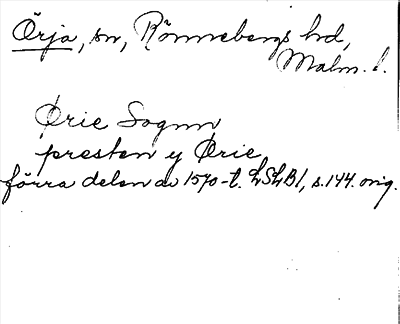 Örja, sn, Rönnebergs hd,
Malm. l.
Ørie Sognn
presten y Ørie
förra delen av 1570-t. LSLB1, s. 144. orig.